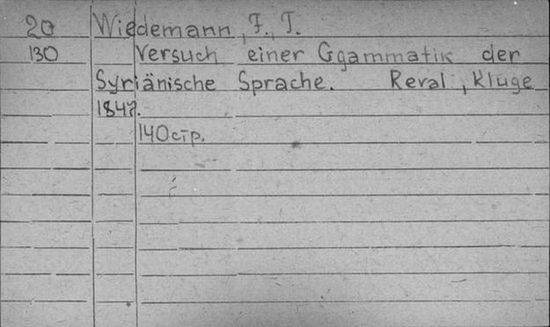 20 Wiedemann, F., T.
130 Versuch einer Ggammatik der
Syriänische Sprache. Reval, Kluge
1847.
140стр.